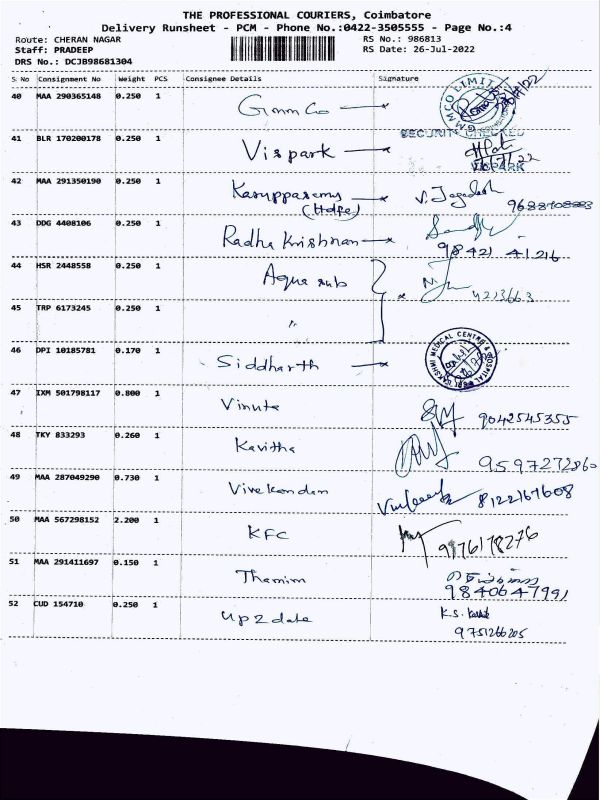 THE PROFESSIONAL COURIERS, Coimbatore
Delivery Runsheet - PCM - Phone No.:0422-3505555 - Page No.:4
Route: CHERAN NAGAR RS No.: 986813
Staff: PRADEEP RS Date: 26-Jul-2022
DRS No.: DCJB98681304
S No Consignment No Weight PCS Consignee Details Signature
40 MAA 290365148 0.250 1 Gmm Co GMMCO LIMITED
SECURITY CHECKED
41 BLR 170200178 0.250 1 Vispark
VISPARK
42 MAA 291350190 0.250 1 V. Jagadesh
(Hdfc)
43 DDG 4408106 0.250 1 Radha Krishnan
98421 41216
44 HSR 2448558 0.250 1 Aqua sub
4213663
45 TRP 6173245 0.250 1 "
46 DPI 10185781 0.170 1 Siddharth LAKSHMI MEDICAL CENTRE & HOSPITAL
47 IXM 501798117 0.800 1 Vinuta 9042545355
48 TKY 833293 0.260 1 Kavitha 9597272860
49 MAA 287049290 0.730 1 Vivekandan 8122167608
50 MAA 567298152 2.200 1 KFC 9176178276
51 MAA 291411697 0.150 1 Thamim
9840647991
52 CUD 154710 0.250 1 up2date K.S.
9751266205